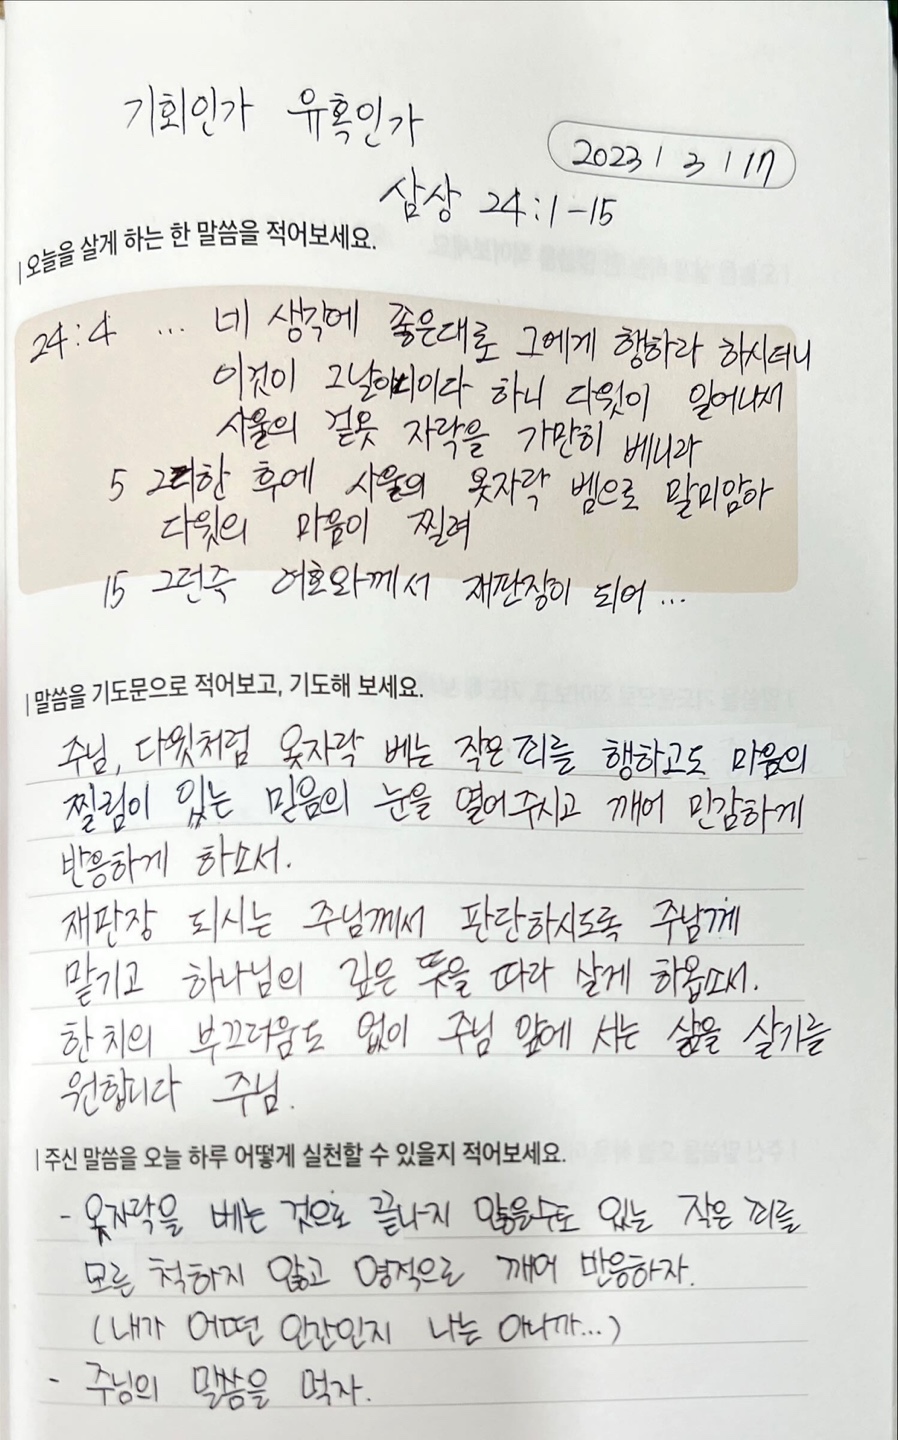 기회인가 유혹인가
2023 / 3 / 17
삼상 24:1-15
오늘을 살게 하는 한 말씀을 적어보세요.
24:4 ... 네 생각에 좋은대로 그에게 행하라 하시더니
이것이 그날이니이다 하니 다윗이 일어나서
사울의 겉옷 자락을 가만히 베니라
5 그러한 후에 사울의 옷자락 벰으로 말미암아
다윗의 마음이 찔려
15 그런즉 여호와께서 재판장이 되어...
말씀을 기도문으로 적어보고, 기도해 보세요.
주님, 다윗처럼 옷자락 베는 작은 죄를 행하고도 마음의
찔림이 있는 믿음의 눈을 열어주시고 깨어 민감하게
반응하게 하소서.
재판장 되시는 주님께서 판단하시도록 주님께
맡기고 하나님의 깊은 뜻을 따라 살게 하옵소서.
한 치의 부끄러움도 없이 주님 앞에 서는 삶을 살기를
원합니다 주님.
주신 말씀을 오늘 하루 어떻게 실천할 수 있을지 적어보세요.
- 옷자락을 베는 것으로 끝나지 않을수도 있는 작은 죄를
모른 척하지 않고 영적으로 깨어 반응하자.
(내가 어떤 인간인지 나는 아니까...)
- 주님의 말씀을 먹자.